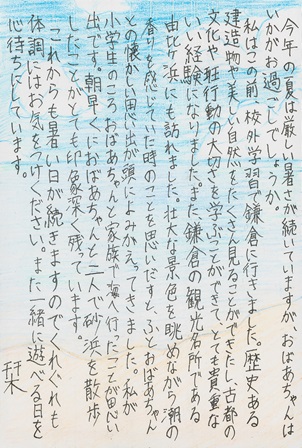 今年の夏は厳しい暑さが続いていますが、おばあちゃんは
いかがお過ごしでしょうか。
私はこの前、校外学習で鎌倉に行きました。歴史ある
建造物や美しい自然をたくさん見ることができたし、古都の
文化や班行動の大切さを学ぶことができて、とても貴重な
いい経験になりました。また、鎌倉の観光名所である
由比ヶ浜にも訪れました。壮大な景色を眺めながら潮の
香りを感じていた時のことを思いだすと、ふとおばあちゃん
との懐かしい思い出が頭によみがえってきました。私が
小学生のころ、おばあちゃんと家族で海へ行ったことが思い
出です。朝早くにおばあちゃんと二人で砂浜を散歩
したことがとても印象深く残っています。
これからも暑い日が続きますのでくれぐれも
体調にはお気をつけください。また一緒に遊べる日を
心待ちにしています。
栞